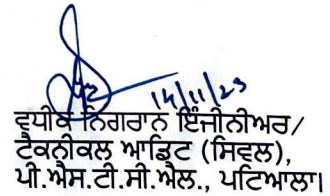 14/11/23
ਵਧੀਕ ਨਿਗਰਾਨ ਇੰਜੀਨੀਅਰ/
ਟੈਕਨੀਕਲ ਆਡਿਟ (ਸਿਵਲ),
ਪੀ.ਐਸ.ਟੀ.ਸੀ.ਐਲ., ਪਟਿਆਲਾ।